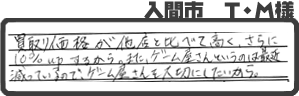 入間市 T・M様
買取り価格が他店と比べて高く、さらに
10%upするから。また、ゲーム屋さんというのは最近
減っているので、ゲーム屋さんを大切にしたいから。